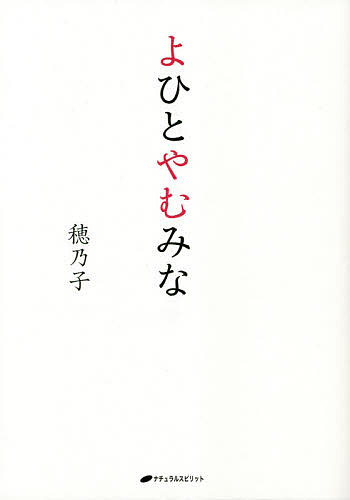 よひとやむみな
穂乃子
ナチュラルスピリット